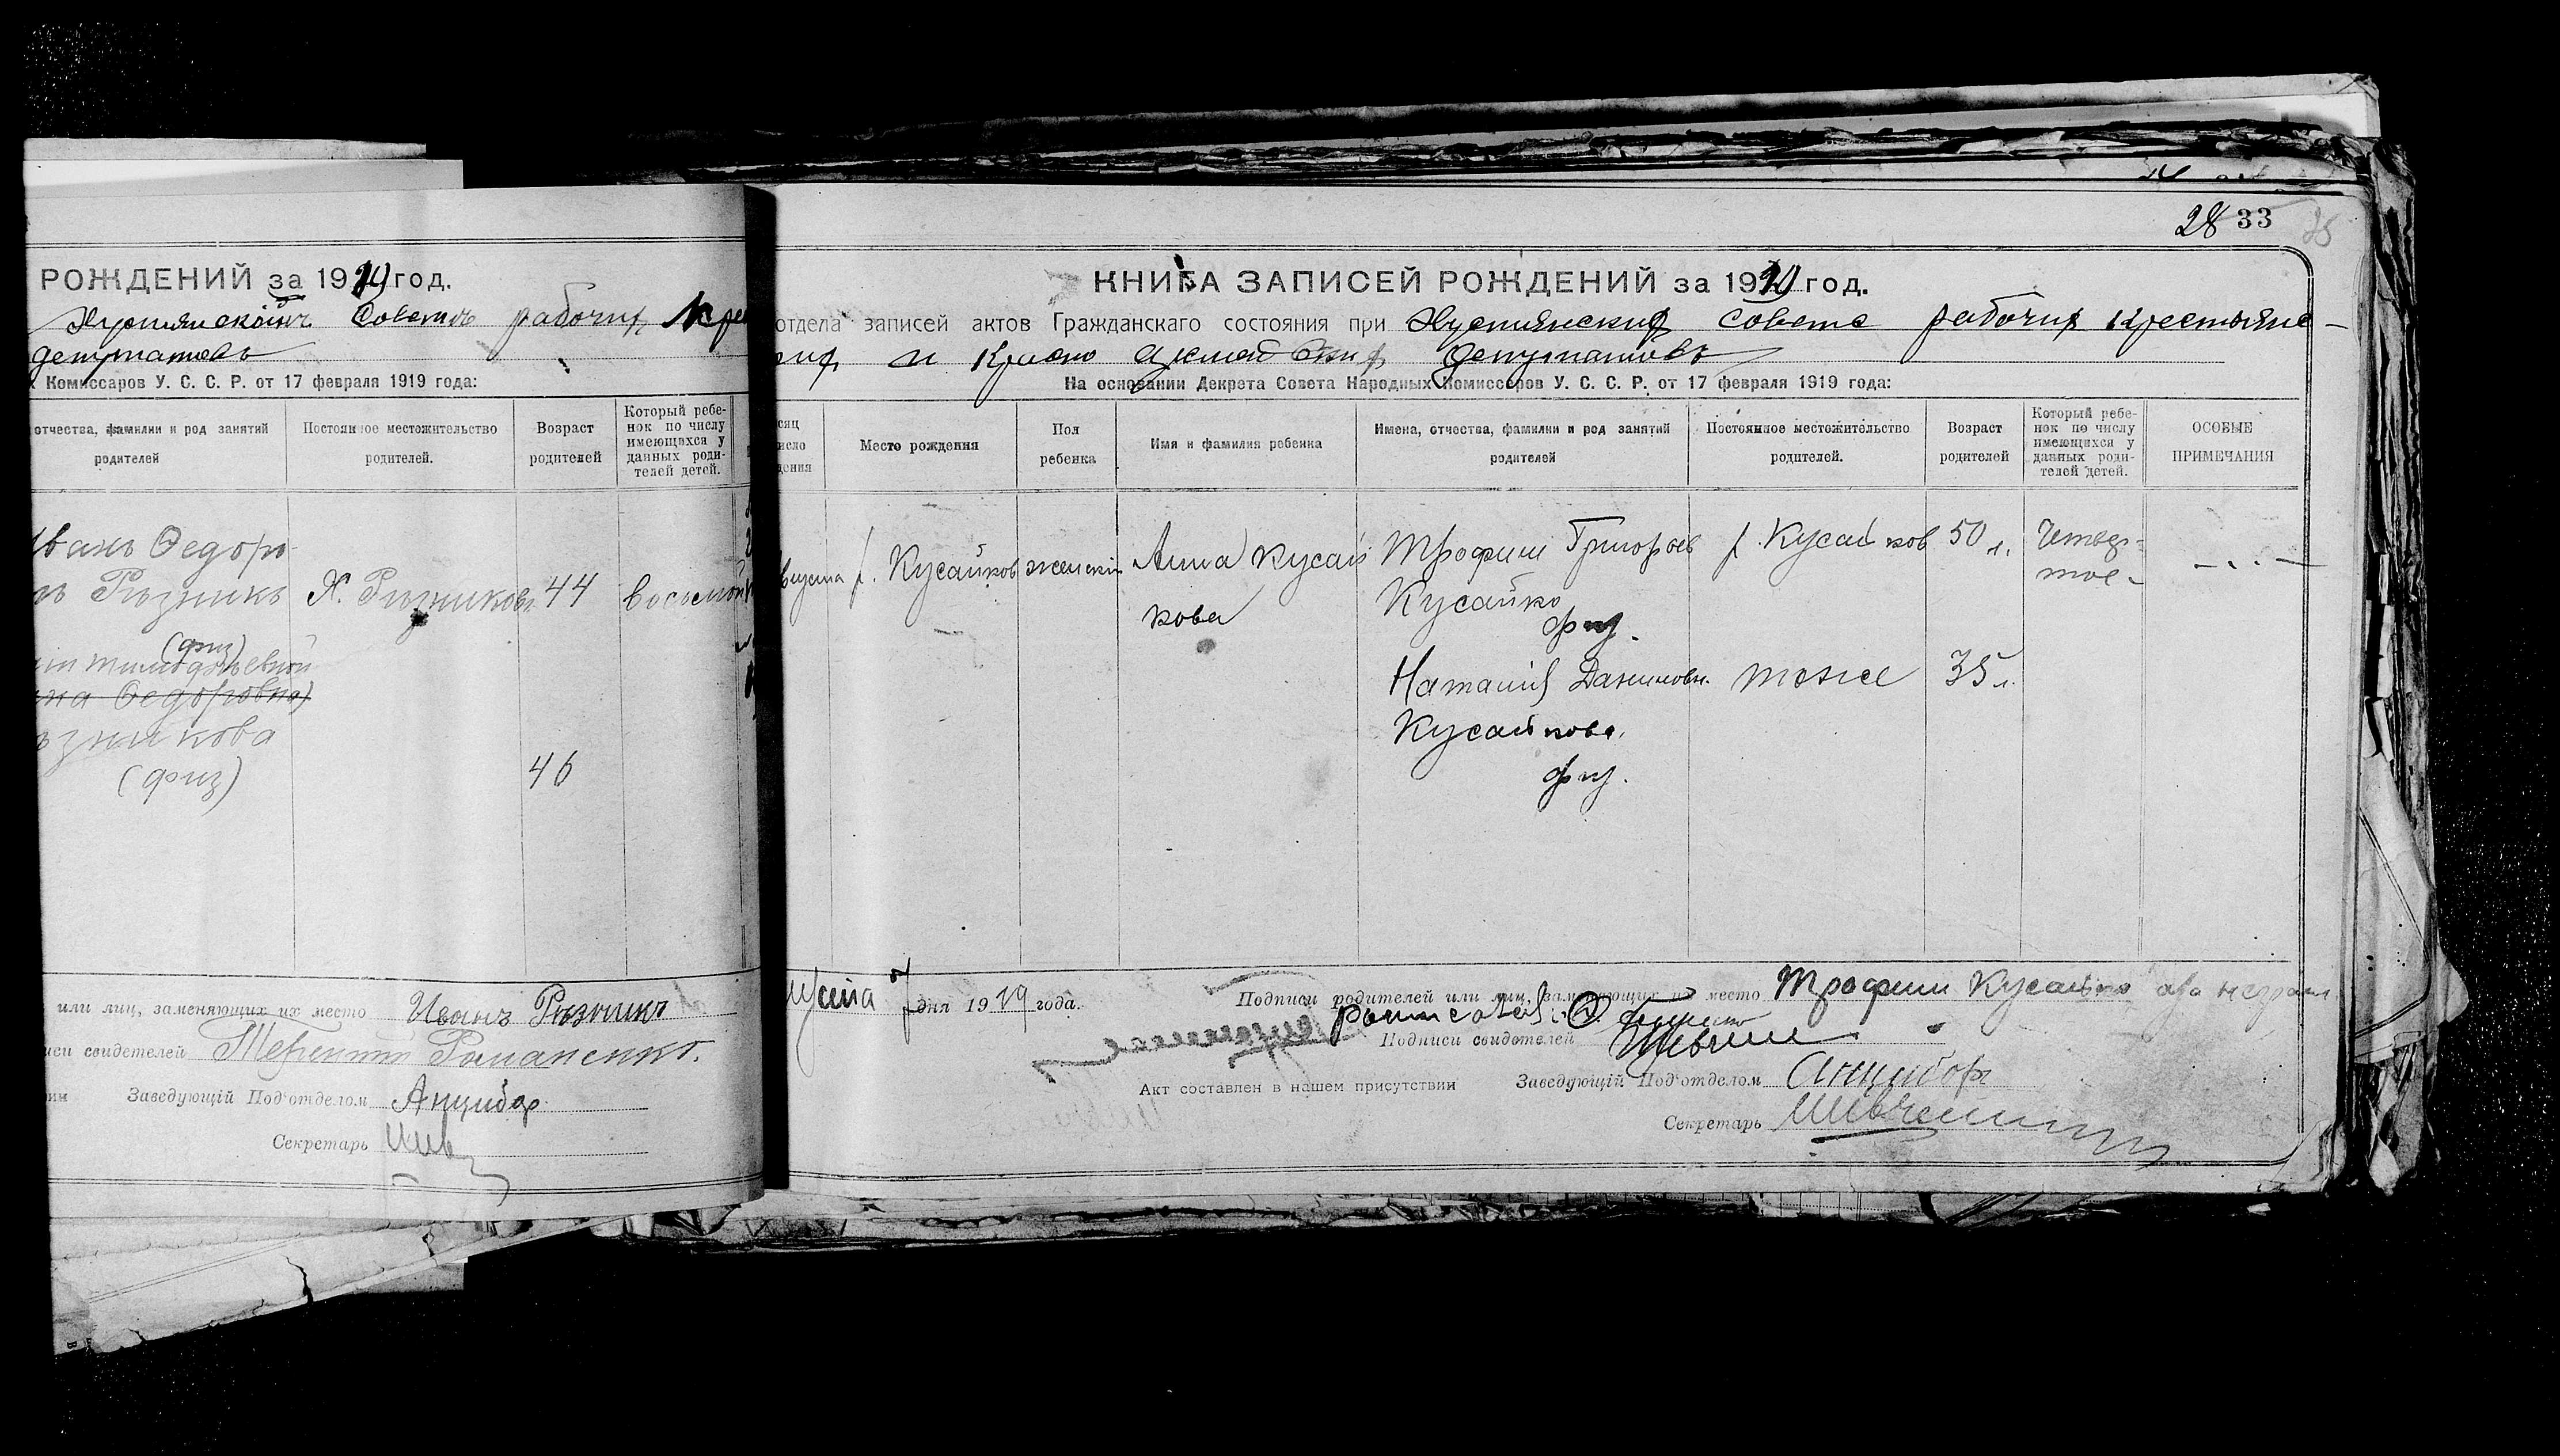 РОЖДЕНИЙ за 1919 год.
Хустянскомъ Советѣ рабочих Кре
депутатовъ
Комиссаров У. С. С. Р. от 17 февраля 1919 года:
отчества, фамилии и род занятий родителей
Постоянное местожительство родителей.
Возраст родителей
Который ребе-
нок по числу
имеющихся у
данных роди-
телей детей.
Иванъ Федоро-
Рѣзникъ
Х. Рѣзниковъ
44
восьмой
(физ)
Федоровна)
зникова
(физ)
46
или лиц, заменяющих их место Иванъ Рѣзникъ
свидетелей Терентий Романенко.
Заведующій Под'отделом Анцибор
Секретарь Шев
28 33
35
КНИГА ЗАПИСЕЙ РОЖДЕНИЙ за 1919 год.
отдела записей актов Гражданскаго состояния при Хустянских совета рабочих крестьянс-
ких и Красно армейских депутатовъ
На основании Декрета Совета Народных Комиссаров У. С. С. Р. от 17 февраля 1919 года:
Место рождения
Пол ребенка
Имя и фамилия ребенка
Имена, отчества, фамилии и род занятий родителей
Постоянное местожительство родителей.
Возраст родителей
Который ребе-
нок по числу
имеющихся у
данных роди-
телей детей.
ОСОБЫЕ ПРИМЕЧАНИЯ
августа
х. Кусайков
женский
Анна Кусай
кова
Трофим Григорьев
Кусайко
физ.
х. Кусайков
50 л.
Четвер-
тое-
Наталия Даниловн.
Кусайкова.
физ.
тоже
35 л.
густа 7 дня 1919 года.
Подписи родителей или лиц, заменяющих их место Трофим Кусайко а за неграм
Подписи свидетелей
Акт составлен в нашем присутствии
Заведующій Под'отделом Анцибор
Секретарь Шевченко